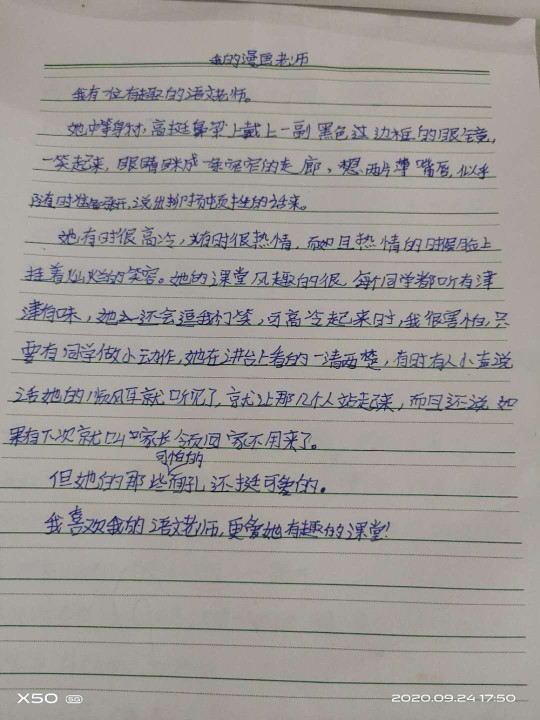 我的漫画老师
我有一位有趣的语文老师。
她中等身材,高挺鼻梁上戴上一副黑色边框的眼镜,
一笑起来,眼睛眯成一条窄窄的走廊,想两片薄嘴唇,似乎
随时准备展开,说出抑扬顿挫的话来。
她有时很高冷,有时很热情,而如且热情的时候脸上
挂着灿烂的笑容。她的课堂风趣的很,每个同学都听有津
津有味,她还会逗我们笑,可高冷起来时,我很害怕,只
要有同学做小动作,她在讲台上看的一清两楚,有时有人小声说
话她的顺风耳就听见了,就让那几个人站起来,而且还说如
果有下次就叫家长领回家不用来了。
可怕的
但她的那些面孔还挺可爱的。
我喜欢我的语文老师,更爱她有趣的课堂!
X50 5G
2020.09.24 17:50